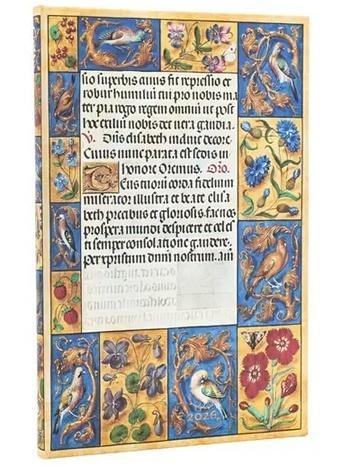 sio superbis cuius fit repressio et
robur humiliū tu pio nobis ma
ter pia rego regem omniū ut post
hoc exiliū nobis det vera gaudia.
V. Dn̄s elisabeth induit decore
Cuius nunc parata est sedis in
honore Oremus. Oro.
Eus tuorū corda fidelium
miserator illustra et beate elisa
beth precibus et gloriosis fac nos
prospera mundi despicere et celes
ti semper consolatione gaudere.
per xpristum dnm̄ nostrum. am̄
2026